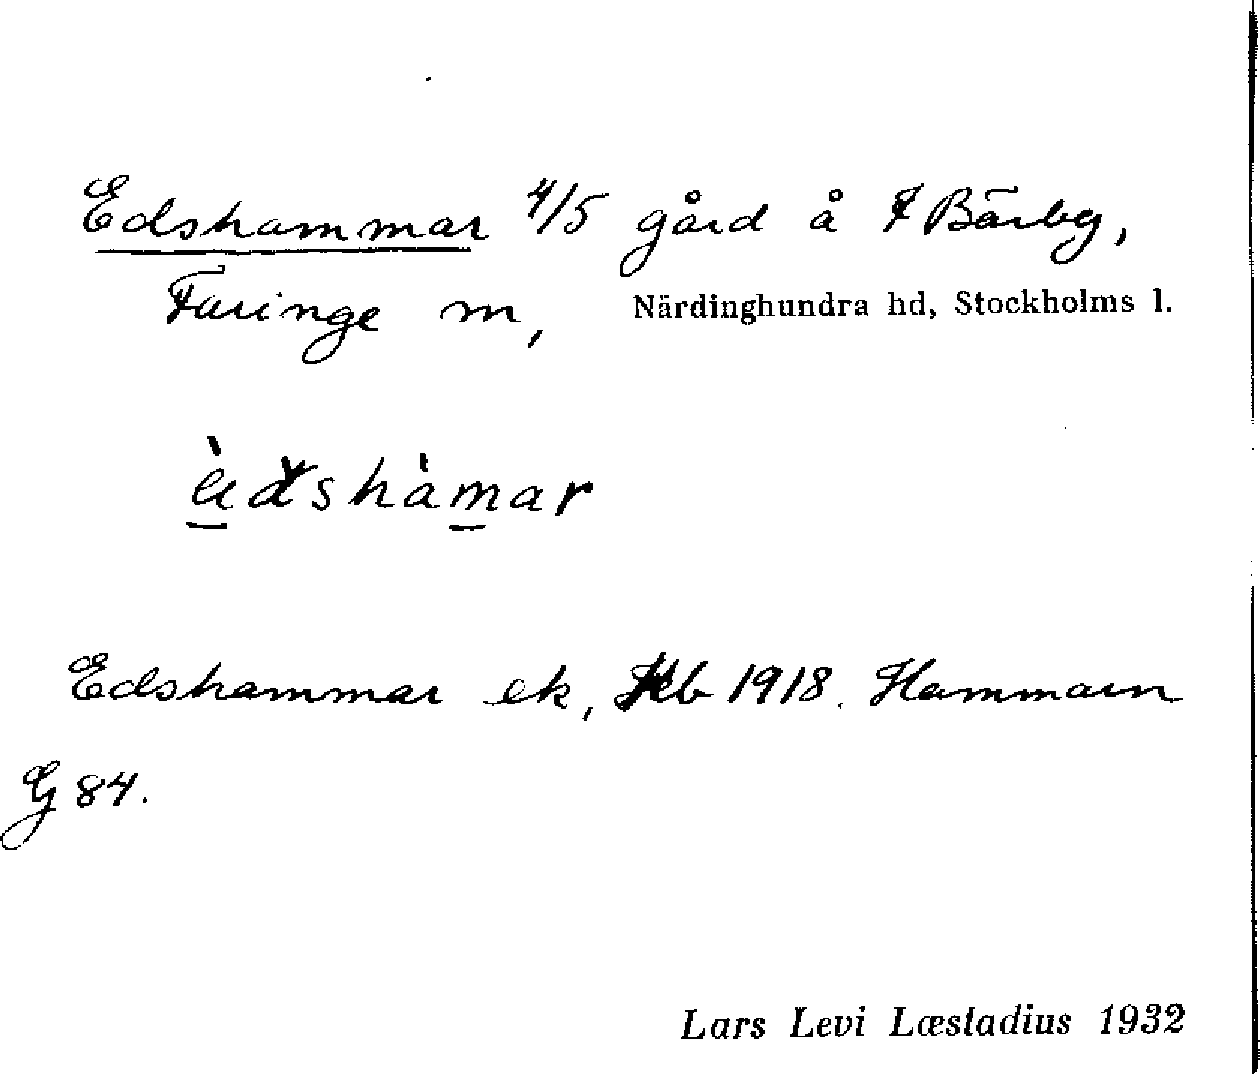 Edshammar 4/5 gård å F Bärby,
Faringe m, Närdinghundra hd, Stockholms l.
Edshammar ek, Kb 1918. Hammarn
G 84.
Lars Levi Læstadius 1932